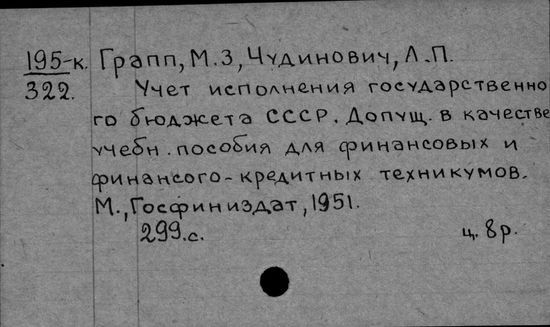 195-к. Грапп, М.З, Чудинович, Л.П.
322. Учет исполнения государственно
го бюджета СССР. Допущ. в качестве
учебн. пособия для финансовых и
финансого-кредитных техникумов.
М., Госфиниздат, 1951.
299.с. ц. 8р.